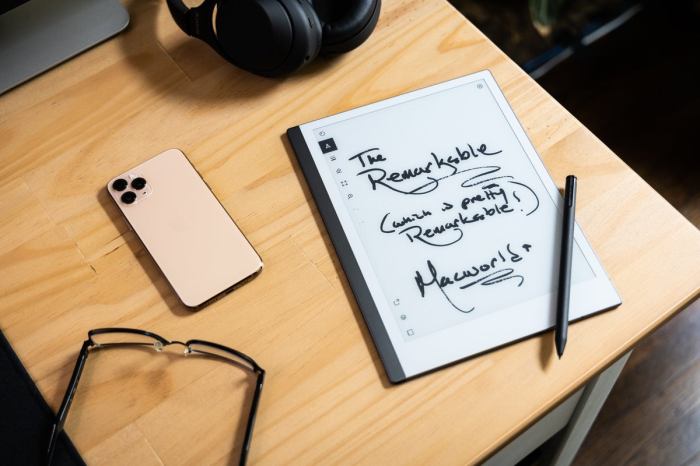 The
Remarkable
(which is pretty
Remarkable!)
Macworld*